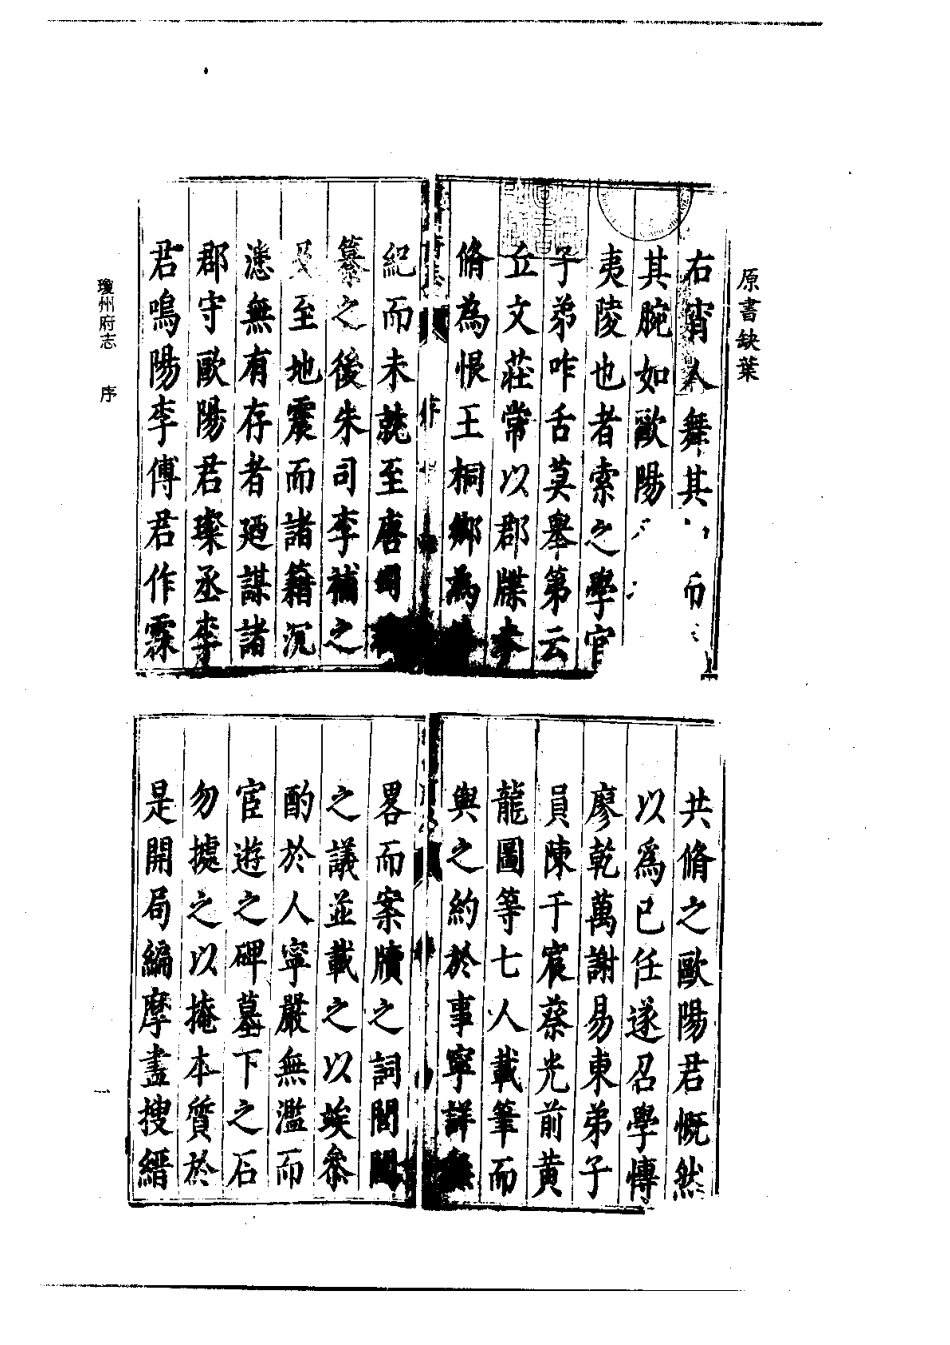 原書缺葉
右宵人舞其
其腕如歐陽
夷陵也者索之學官
子弟咋舌莫舉第云
丘文莊常以郡牒未
脩為恨王桐鄉為
紀而未就至唐
纂之後朱司李補之
至地震而諸籍沉
漶無有存者廼謀諸
郡守歐陽君璨丞李
君鳴陽李傅君作霖
共脩之歐陽君慨然
以爲已任遂召學博
廖乾萬謝易東弟子
員陳于宸蔡光前黄
龍圖等七人載筆而
與之約於事寧詳無
畧而案牘之詞閭閻
之議並載之以埃叅
酌於人寧嚴無濫而
宦遊之碑墓下之石
勿據之以掩本質於
是開局編摩盡搜縉
瓊州府志 序
一